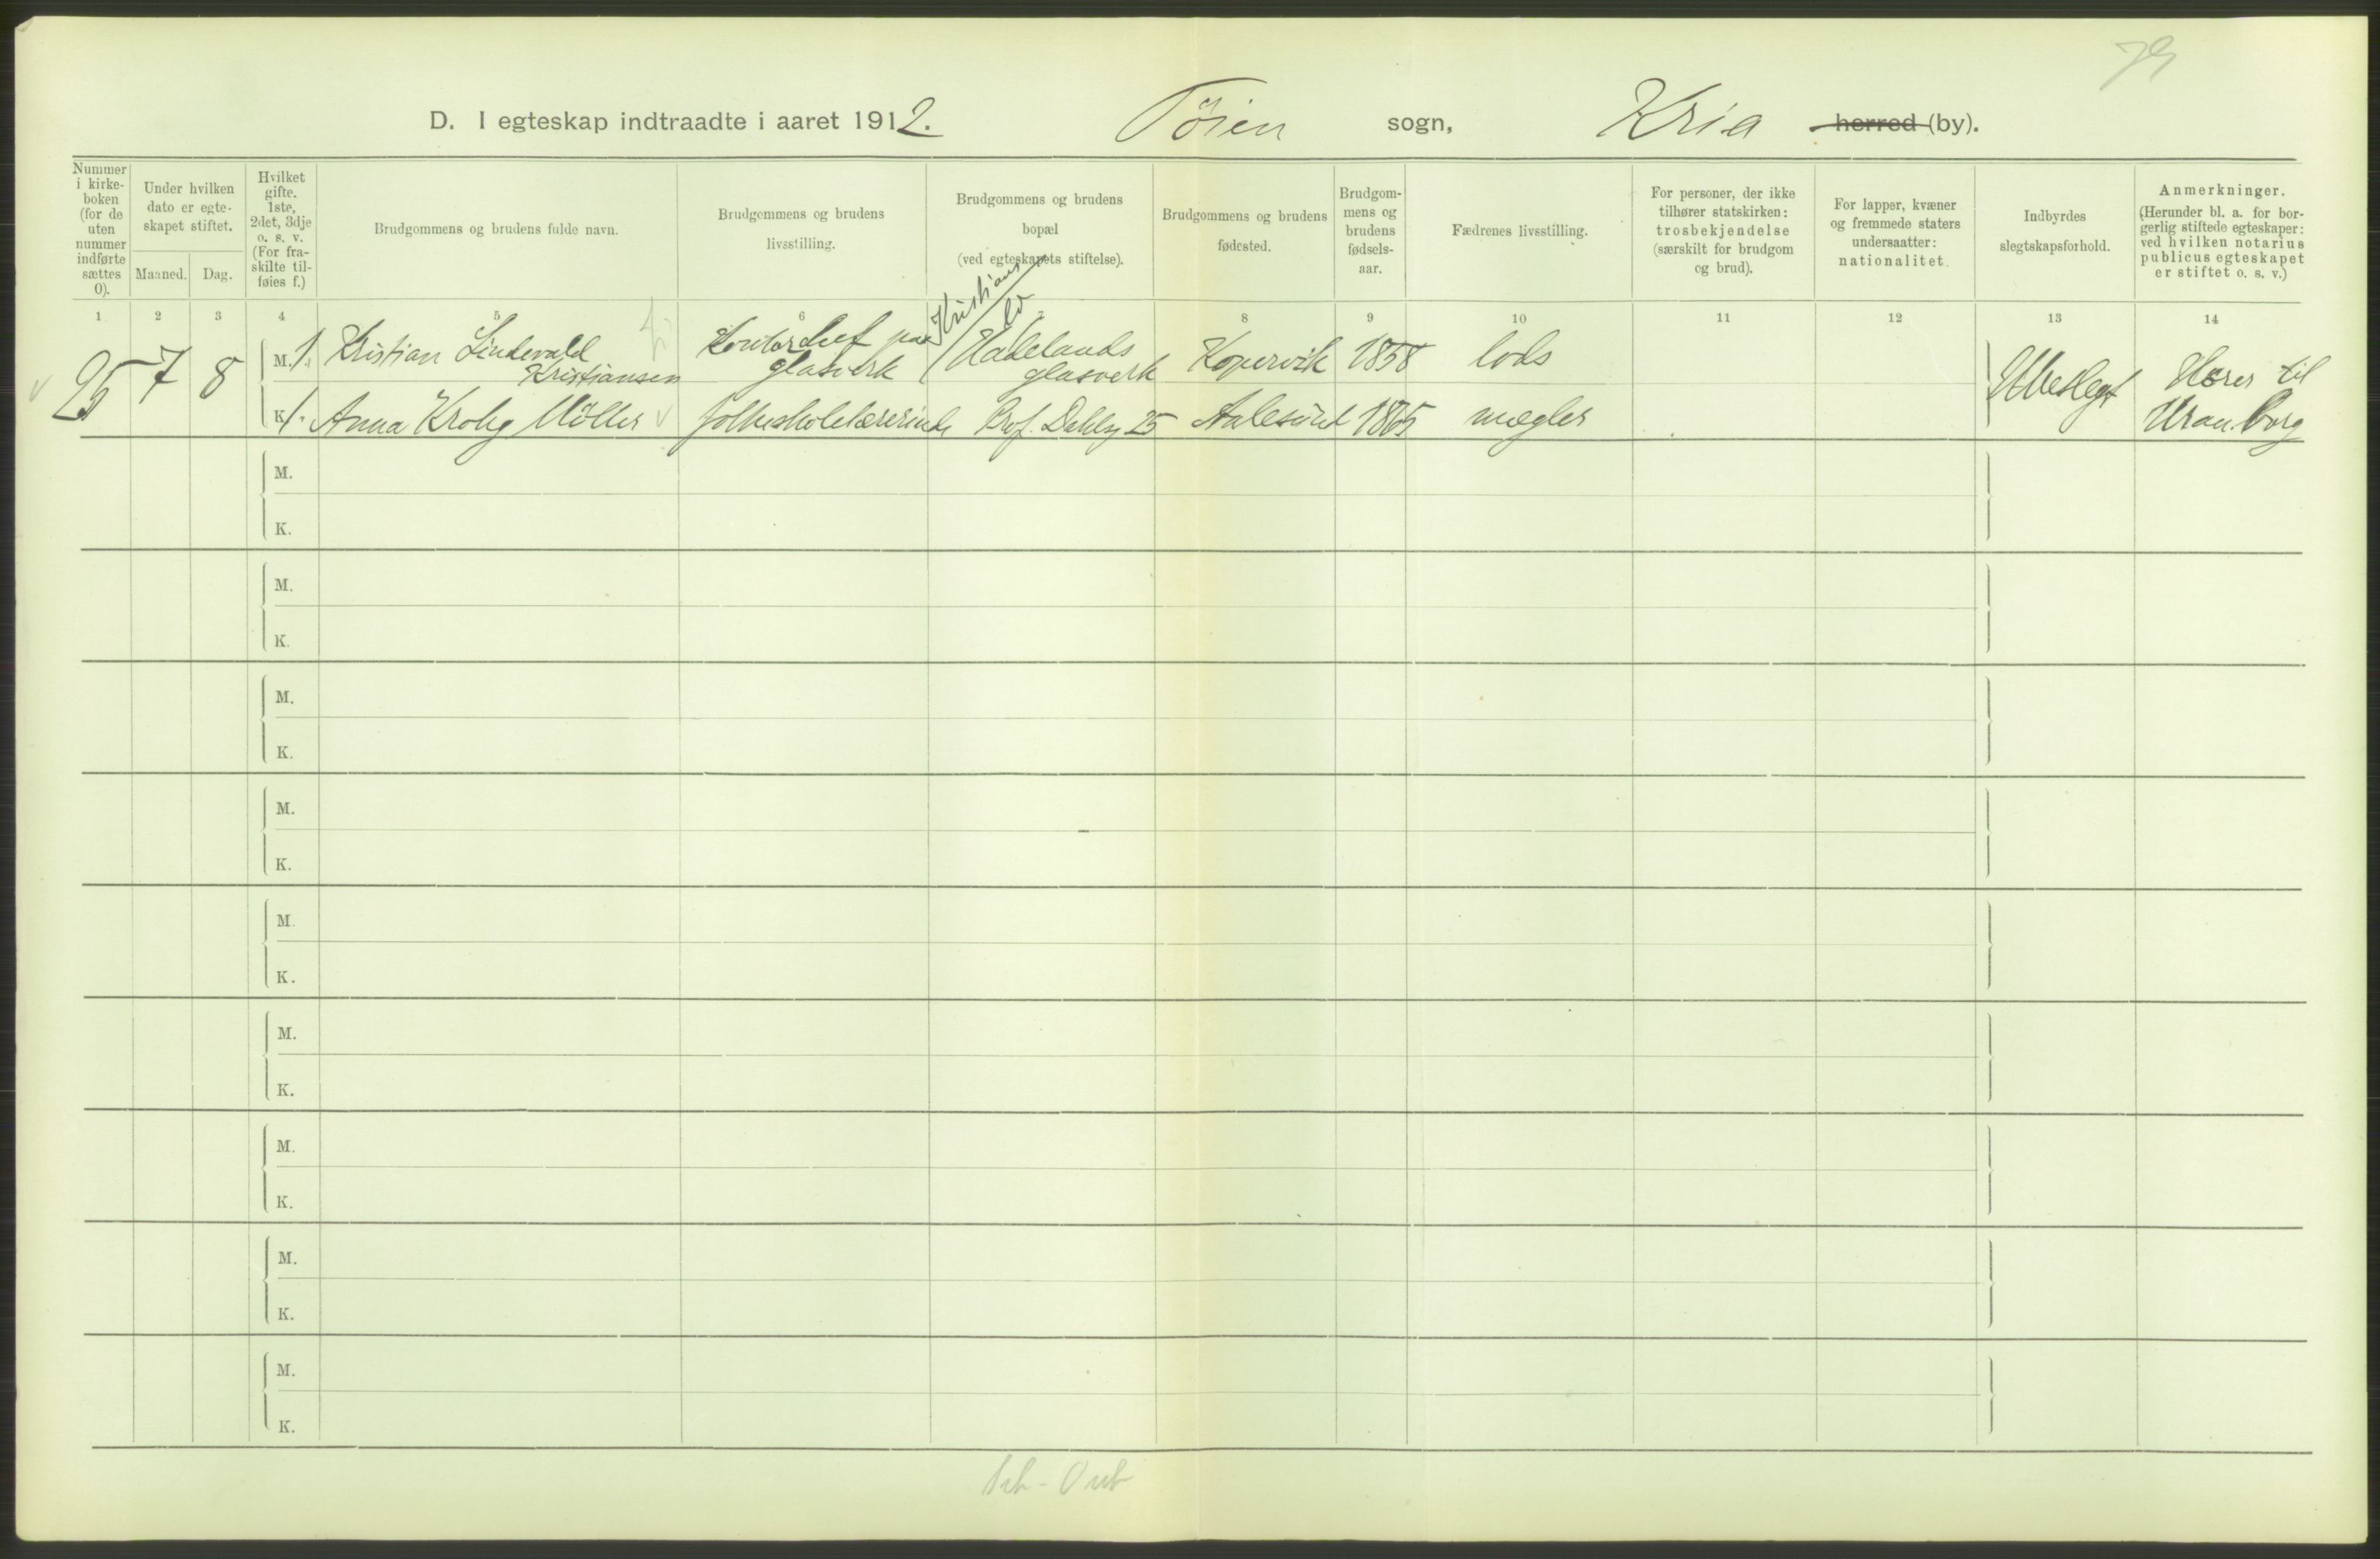 79
D. I egteskap indtraadte i aaret 1912. Tøien sogn, Kria herred (by).
Nummer i kirke-boken (for de uten nummer indførte sættes 0).
Under hvilken dato er egte-skapet stiftet.
Maaned. Dag.
Hvilket gifte. 1ste, 2det, 3dje o. s. v. (For fra-skilte til-føies f.)
Brudgommens og brudens fulde navn.
Brudgommens og brudens livsstilling.
Brudgommens og brudens bopæl (ved egteskapets stiftelse).
Brudgommens og brudens fødested.
Brudgom-mens og brudens fødsels-aar.
Fædrenes livsstilling.
For personer, der ikke tilhører statskirken: trosbekjendelse (særskilt for brudgom og brud).
For lapper, kvæner og fremmede staters undersaatter: nationalitet.
Indbyrdes slegtskapsforhold.
Anmerkninger. (Herunder bl. a. for bor-gerlig stiftede egteskaper: ved hvilken notarius publicus egteskapet er stiftet o. s. v.)
1 2 3 4 5 6 7 8 9 10 11 12 13 14
25 7 8 M. 1. Kristian Lindevald Kristiansen Kontorchef paa glasverk Kristians Hadelands glasverk Kopervik 1858 lods Ubeslegt Hører til Uranborg
K. 1. Anna Krohg Møller folkeskolelærerinde Prof. Dahlsg 25 Aalesund 1865 mægler
M.
K.
M.
K.
M.
K.
M.
K.
M.
K.
M.
K.
M.
K.
M.
K.
M.
K.